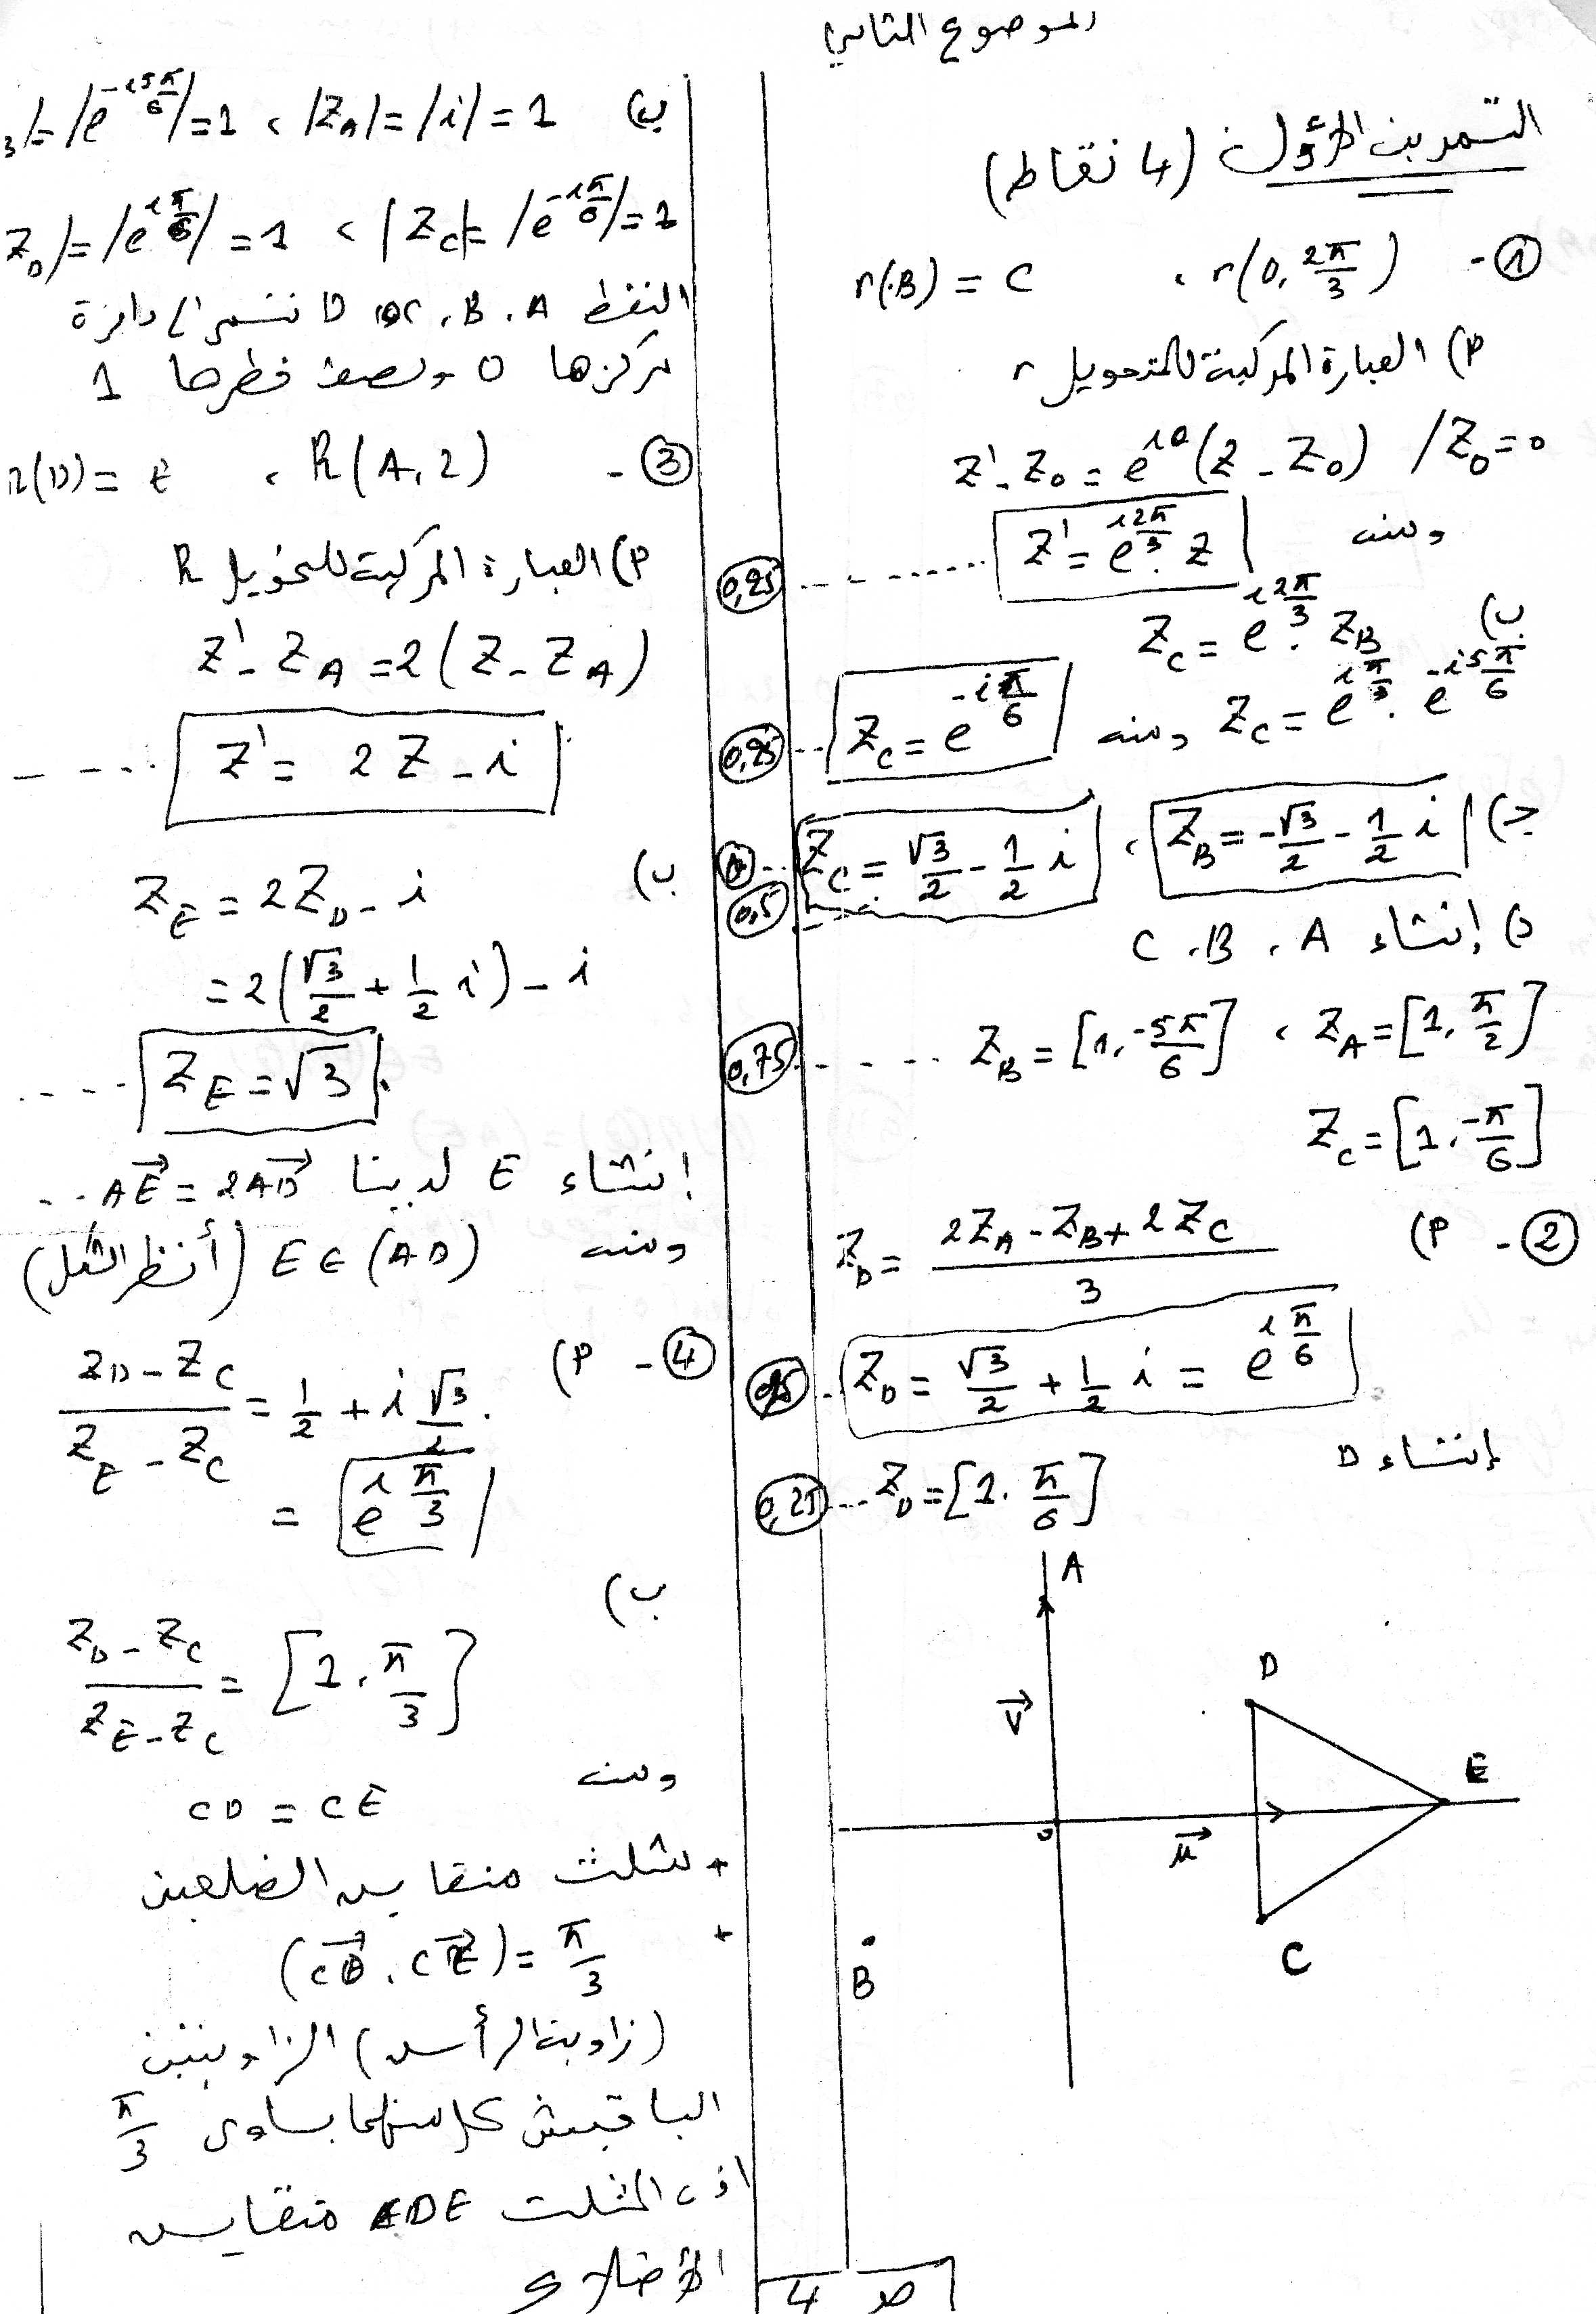 الموضوع الثاني
التمرين الأول (4 نقاط)
①- r(0, 2π/3) ، r(B) = C
أ) العبارة المركبة للتحويل r
Z' - Z₀ = e^{iθ}(Z - Z₀) / Z₀ = 0
ومنه Z' = e^{i2π/3} . Z
0,25
ب) Z_C = e^{i2π/3} . Z_B
Z_C = e^{i2π/3} . e^{-i5π/6} ومنه Z_C = e^{-iπ/6}
0,25
جـ) Z_B = -√3/2 - 1/2 i ، Z_C = √3/2 - 1/2 i
0,5
د) إنشاء A ، B ، C
Z_A = [1, π/2] ، Z_B = [1, -5π/6]
0,75
Z_C = [1, -π/6]
②- أ) Z_D = (2Z_A - Z_B + 2Z_C)/3
Z_D = √3/2 + 1/2 i = e^{iπ/6}
إنشاء D
Z_D = [1, π/6]
0,25
A
V⃗
D
E
o
u⃗
B
C
ب) |Z_A| = |i| = 1 ، |e^{-i5π/6}| = 1
|Z_C| = |e^{-iπ/6}| = 1 ، Z_D| = |e^{iπ/6}| = 1
النقط A ، B ، C و D تنتمي إلى دائرة
مركزها O ونصف قطرها 1
③- R(A, 2) ، R(D) = E
أ) العبارة المركبة للتحويل R
Z' - Z_A = 2(Z - Z_A)
Z' = 2Z - i
ب) Z_E = 2Z_D - i
= 2(√3/2 + 1/2 i) - i
Z_E = √3
إنشاء E لدينا AE⃗ = 2AD⃗
ومنه E ∈ (AD) (أنظر الشكل)
④- أ) (Z_D - Z_C)/(Z_E - Z_C) = 1/2 + i √3/2
= e^{iπ/3}
ب)
(Z_D - Z_C)/(Z_E - Z_C) = [1, π/3]
ومنه CD = CE
+ مثلث متقايس الضلعين
+ (CD⃗, CE⃗) = π/3
(زاوية الرأس) الزاويتين
الباقيتين كل منهما يساوي π/3
اذن المثلث CDE متقايس
الأضلاع
4 ص